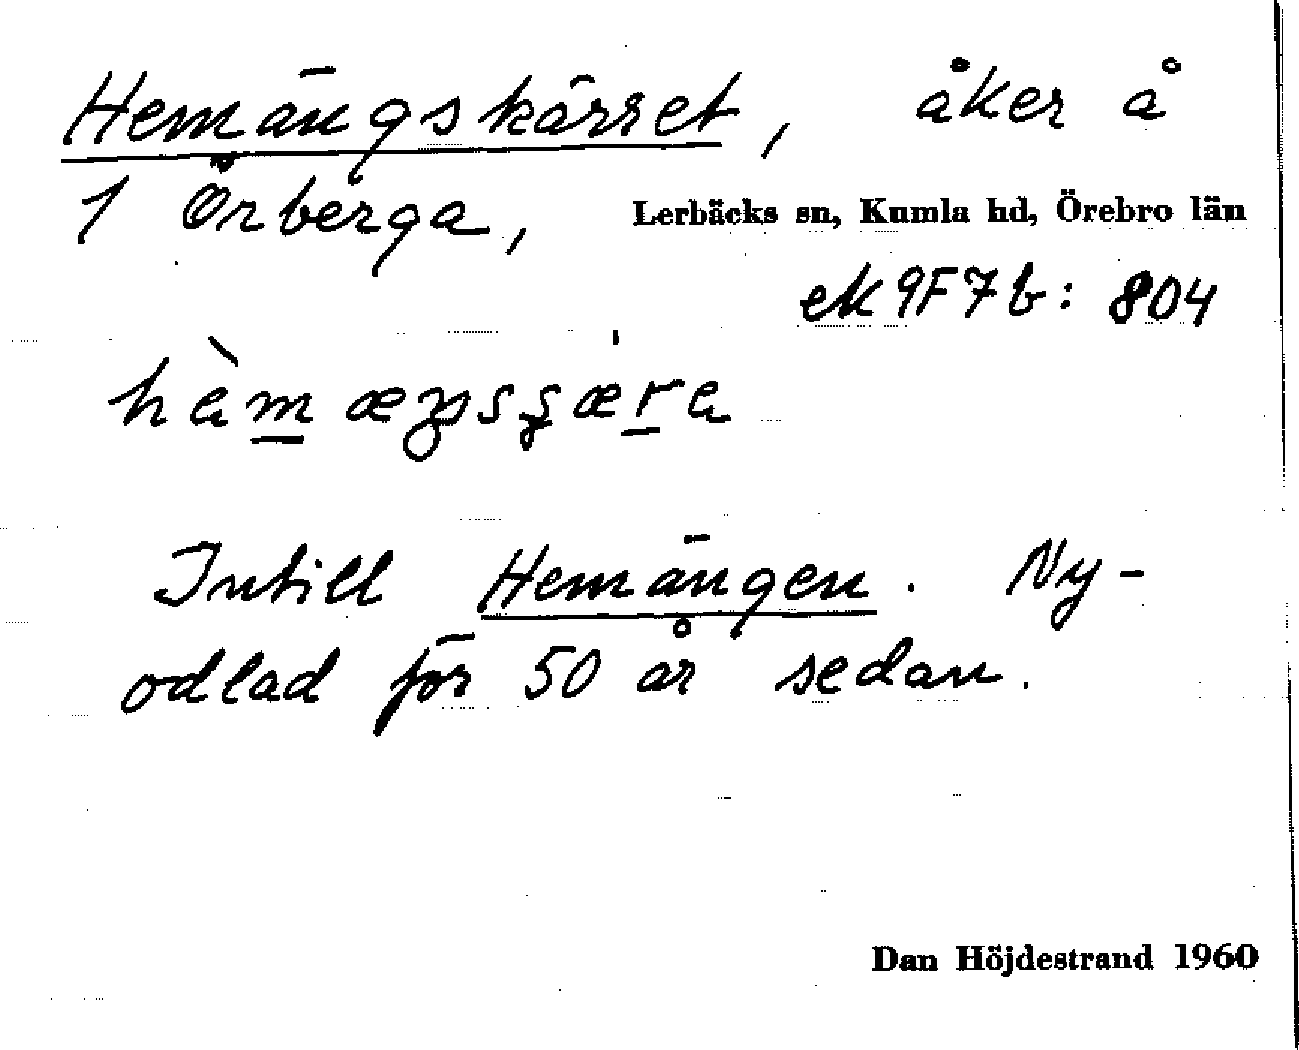 Hemängskärret, åker å
1 Örberga, Lerbäcks sn, Kumla hd, Örebro län
ek 9F7b: 804
Intill Hemängen. Ny-
odlad för 50 år sedan.
Dan Höjdestrand 1960